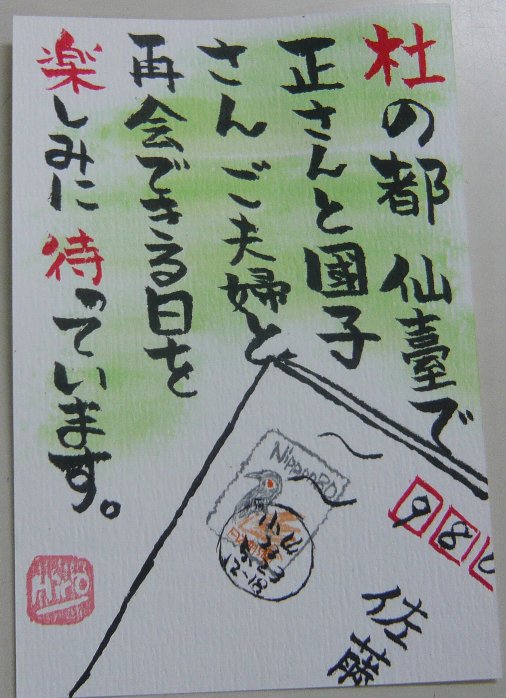 杜の都 仙臺で
正さんと國子
さん ご夫婦と
再会できる日を
楽しみに 待っています。
NIPPON 80
小山
12-18
980
佐藤
HIRO